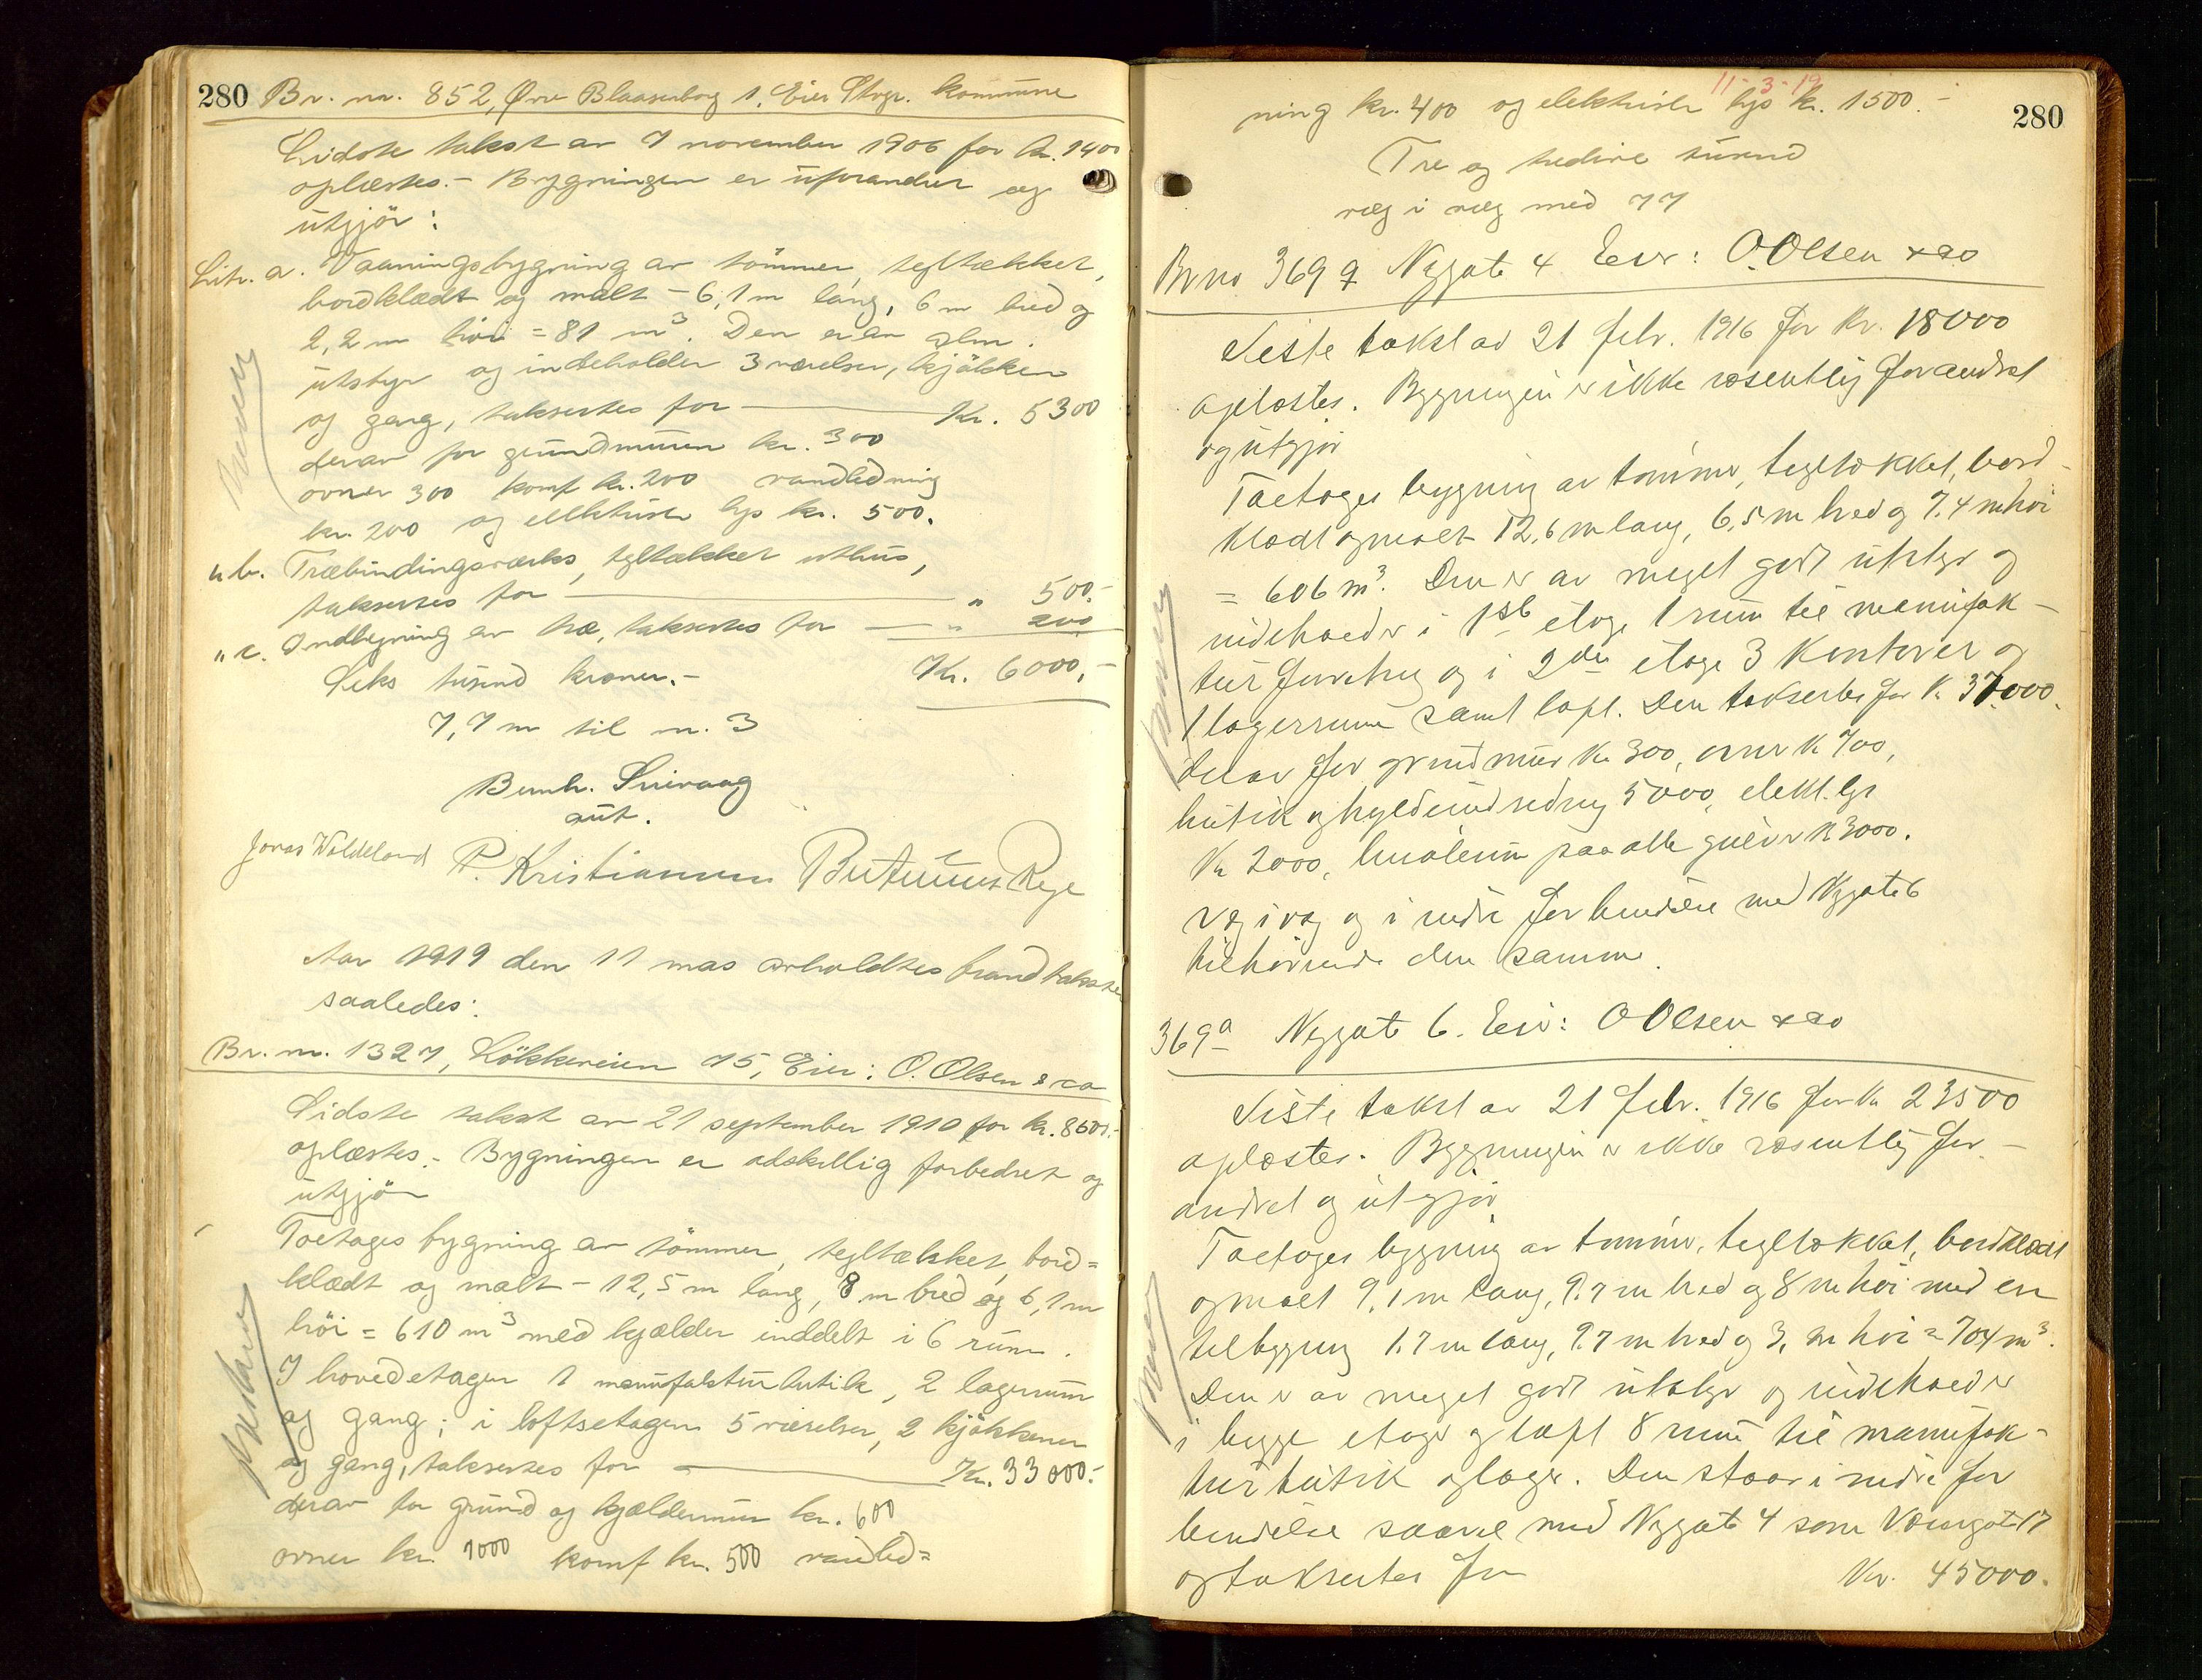 280 Br. nr. 852, Øvre Blaasenborg 1, Eier Stvgr. kommune
Sidste takst av 7 november 1906 for kr. 1400
oplæstes. - Bygningen er uforandret og
utgjör:
Litr. a. Vaaningsbygning av tömmer, tegltækket,
bordklædt og malt - 6,1 m lang, 6 m bred og
2,2 m höi = 81 m³. Den er av alm.
utstyr og indeholder 3 værelser, kjökken
og gang, taksertes for Kr. 5300
derav for grundmuren kr. 300
ovner 300 komf kr. 200 vandledning
kr. 200 og elektrisk lys kr. 500.
" b. Træbindingsværks, tegltækket uthus,
taksertes for " 500.-
" c. Indbygning av træ, taksertes for " 200
Seks tusind kroner.- Kr. 6000,-
7,7 m til nr. 3
Bernh.
aut.
Jonas Kristiansen Rege
Aar 1919 den 11 mars avholdtes brandtakster
saaledes:
Br. nr. 1327, Lökkeveien 75, Eier: O. Olsen & co
Sidste takst av 21 september 1910 for kr. 8600.-
oplæstes. - Bygningen er adskillig forbedret og
utgjör
Toetages bygning av tömmer, tegltækket, bord=
klædt og malt - 12,5 m lang, 8 m bred og 6,1 m
höi = 610 m³ med kjælder inddelt i 6 rum.
I hovedetagen 1 manufakturbutik, 2 lagerrum
og gang; i loftsetagen 5 værelser, 2 kjökkener
og gang, taksertes for Kr. 33000.-
derav for grund og kjældermur kr. 600
ovner kr. 1000 komf kr. 500 vandled=
11-3-19
280
ning kr. 400 og elektrisk lys kr. 1500.-
Tre og tredive tusind
væg i væg med 77
Br no 369 q Nygate 4 Eier: O. Olsen & co
Siste takst av 21 febr. 1916 for kr. 18000
oplæstes. Bygningen er ikke væsentlig forandret
og utgjör
Toetages bygning av tömmer, tegltækket, bord-
klædt og malt 12,6 m lang, 6,5 m bred og 7.4 m höi
= 606 m³. Den er av meget godt utstyr og
indeholder i 1ste etage 1 rum til manufak-
turforretng og i 2den etage 3 kontorer og
1 lagerrum samt loft. Den takseres for kr 37000.
derav for grundmur kr 300, ovner kr 700,
butik og hyldeindredning 5000, elekt. lys
kr 2000, linoleum paa alle gulver kr 3000.
væg i væg og i indre forbindelse med Nygate 6
tilhörende den samme.
369 a Nygate 6. Eier: O Olsen & co
Siste takst av 21 febr. 1916 for kr 23500
oplæstes. Bygningen er ikke væsentlig for-
andret og utgjör
Toetages bygning av tömmer, tegltækket, bordklædt
og malt 9,1 m lang, 9.7 m bred og 8 m höi med en
tilbygning 1.7 m lang, 9.7 m bred og 3, m höi = 704 m³.
Den er av meget godt utstyr og indeholder
i begge etager og loft 8 rum til manufak-
turbutik og lager. Den staar i indre for
bindelse saavel med Nygate 4 som 17
og taksertes for Kr. 45000.